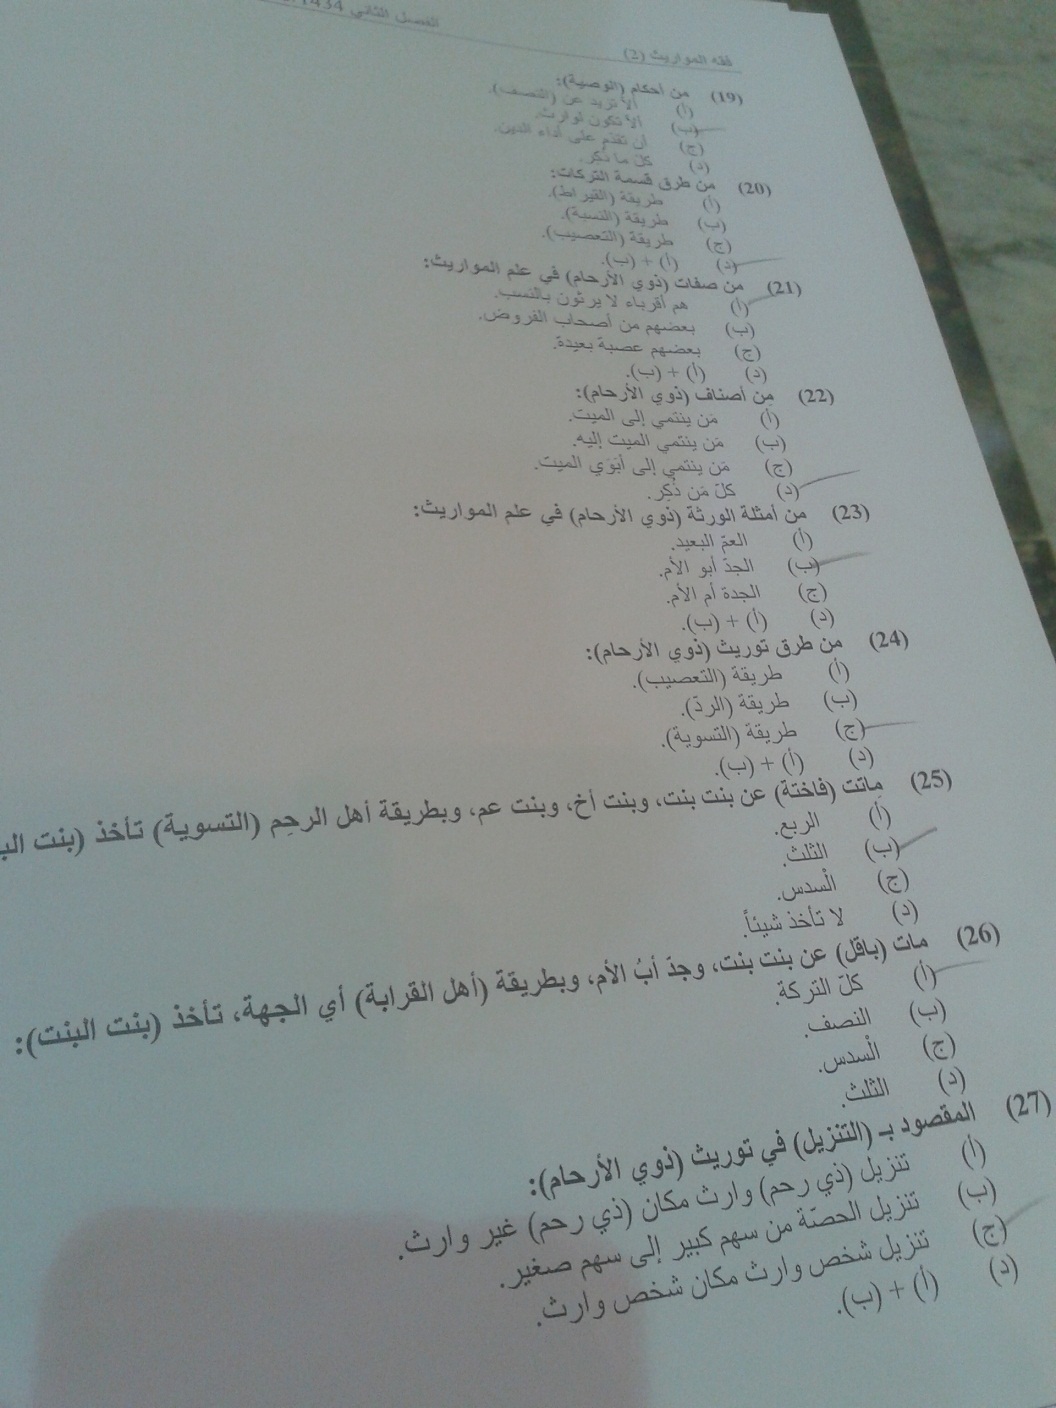 الفصل الثاني 1434
فقه المواريث (2)
(19) من أحكام (الوصية):
(أ) ألا تزيد عن (النصف).
(ب) ألا تكون لوارث.
(ج) أن تقدم على أداء الدين.
(د) كل ما ذُكِر.
(20) من طرق قسمة التركات:
(أ) طريقة (القيراط).
(ب) طريقة (النسبة).
(ج) طريقة (التعصيب).
(د) (أ) + (ب).
(21) من صفات (ذوي الأرحام) في علم المواريث:
(أ) هم أقرباء لا يرثون بالنسب.
(ب) بعضهم من أصحاب الفروض.
(ج) بعضهم عصبة بعيدة.
(د) (أ) + (ب).
(22) مِن أصناف (ذوي الأرحام):
(أ) مَن ينتمي إلى الميت.
(ب) مَن ينتمي الميت إليه.
(ج) مَن ينتمي إلى أبَوَي الميت.
(د) كلّ مَن ذُكِر.
(23) من أمثلة الورثة (ذوي الأرحام) في علم المواريث:
(أ) العمّ البعيد.
(ب) الجدّ أبو الأم.
(ج) الجدة أم الأم.
(د) (أ) + (ب).
(24) من طرق توريث (ذوي الأرحام):
(أ) طريقة (التعصيب).
(ب) طريقة (الردّ).
(ج) طريقة (التسوية).
(د) (أ) + (ب).
(25) ماتت (فاختة) عن بنت بنت، وبنت أخ، وبنت عم، وبطريقة أهل الرحِم (التسوية) تأخذ (بنت
(أ) الربع.
(ب) الثلث.
(ج) الْسدس.
(د) لا تأخذ شيئاً.
(26) مات (باقل) عن بنت بنت، وجدّ أبُ الأم، وبطريقة (أهل القرابة) أي الجهة، تأخذ (بنت البنت):
(أ) كلّ التركة.
(ب) النصف.
(ج) الْسدس.
(د) الثلث.
(27) المقصود بـ (التنزيل) في توريث (ذوي الأرحام):
(أ) تنزيل (ذي رحم) وارث مكان (ذي رحم) غير وارث.
(ب) تنزيل الحصّة من سهم كبير إلى سهم صغير.
(ج) تنزيل شخص وارث مكان شخص وارث.
(د) (أ) + (ب).